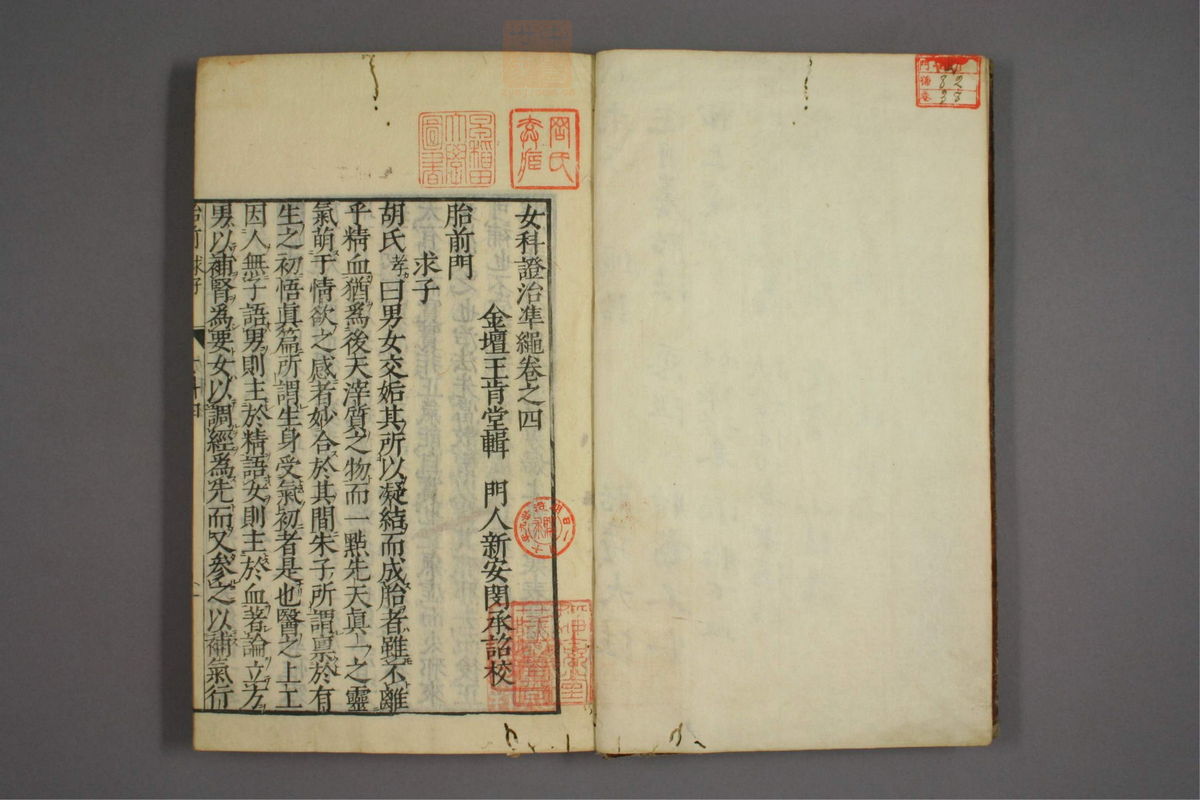 女科證治準繩卷之四
金壇王肯堂輯　門人新安閔承詔校
胎前門
求子
胡氏孝曰男女交姤其所以凝結而成胎者雖不離
乎精血猶為後天滓質之物而一點先天真一之靈
氣萌于情欲之感者妙合於其間朱子所謂禀於有
生之初悟真篇所謂生身受氣初者是也醫之上工
因人無子語男則主於精語女則主於血著論立方
男以補腎為要女以調經為先而又參之以補氣行
胎前 求子
早稲田大學圖書